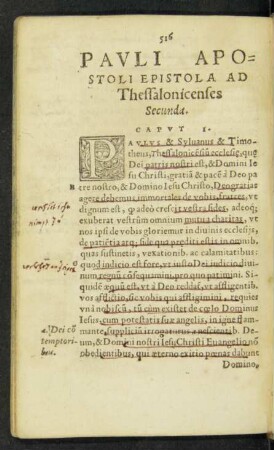 516
PAVLI APO=
STOLI EPISTOLA AD
Thessalonicenses
Secunda.
CAPVT I.
PAVLVS & Syluanus & Timo-
theus, Thessalonicēsiū ecclesiæ, quę
Dei patris nostri est, & Domini Ie
su Christi, gratiā & pacē à Deo pa
re nostro, & Domino Iesu Christo, Deo gratias
agere debemus immortales de vobis, fratres, vt
dignum est, quòd adeò crescit vestra fides, adeoq;
exuberat vestrûm omnium mutua charitas, vt
nos ipsi de vobis gloriemur in diuinis ecclesijs,
de patiētia atq; fide qua prediti estis in omnib.
quas sustinetis, vexationib. ac calamitatibus:
quod indicio est fore, vt iusto Dei iudicio diui-
num regnū cōsequamini, pro quo patimini. Si-
quidē æquū est, vt à Deo reddat, vt affligentib.
vos afflictio, sic vobis qui affligimini, requies
vna nobiscū, tū cùm existet de cœlo Dominus
Iesus, cum potestatis suæ angelis, in igne flam-
mante, supplicium irrogaturus
Deum, & Domini nostri Iesu Christi Euangelio nō
obedientibus, qui æterno exitio pœnas dabunt
Domino,
B
a Dei cō
temptori-
bus.